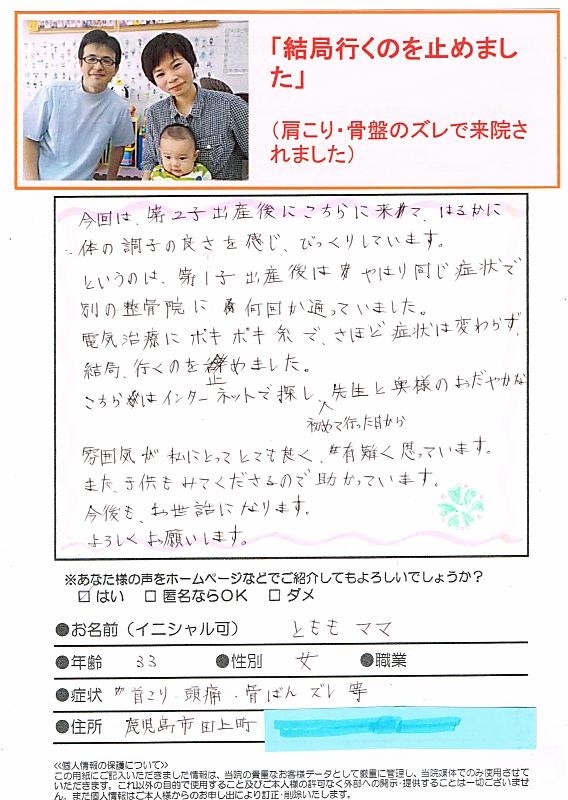 「結局行くのを止めまし
た」
（肩こり・骨盤のズレで来院さ
れました）
今回は、第2子出産後にこちらに来て、はるかに
体の調子の良さを感じ、びっくりしています。
というのは、第1子出産後は やはり同じ症状で
別の整骨院に 何回か通っていました。
電気治療にボキボキ系で、さほど症状は変わらず、
結局、行くのを止めました。
こちらはインターネットで探し、先生と奥様のおだやかな
初めて行った日から
雰囲気が私にとってとても良く、有難く思っています。
また、子供もみてくださるので助かっています。
今後も、お世話になります。
よろしくお願いします。
※あなた様の声をホームページなどでご紹介してもよろしいでしょうか？
☑ はい □ 匿名ならOK □ ダメ
●お名前（イニシャル可） とももママ
●年齢 33 ●性別 女 ●職業
●症状 首こり・頭痛・骨ばんズレ等
●住所 鹿児島市田上町
≪個人情報の保護について≫
この用紙にご記入いただきました情報は、当院の貴重なお客様データとして厳重に管理し、当院媒体でのみ使用させて
いただきます。これ以外の目的で使用すること及びご本人様の許可なく外部への開示・提供することは一切ございませ
ん。また個人情報はご本人様からのお申し出により訂正・削除いたします。